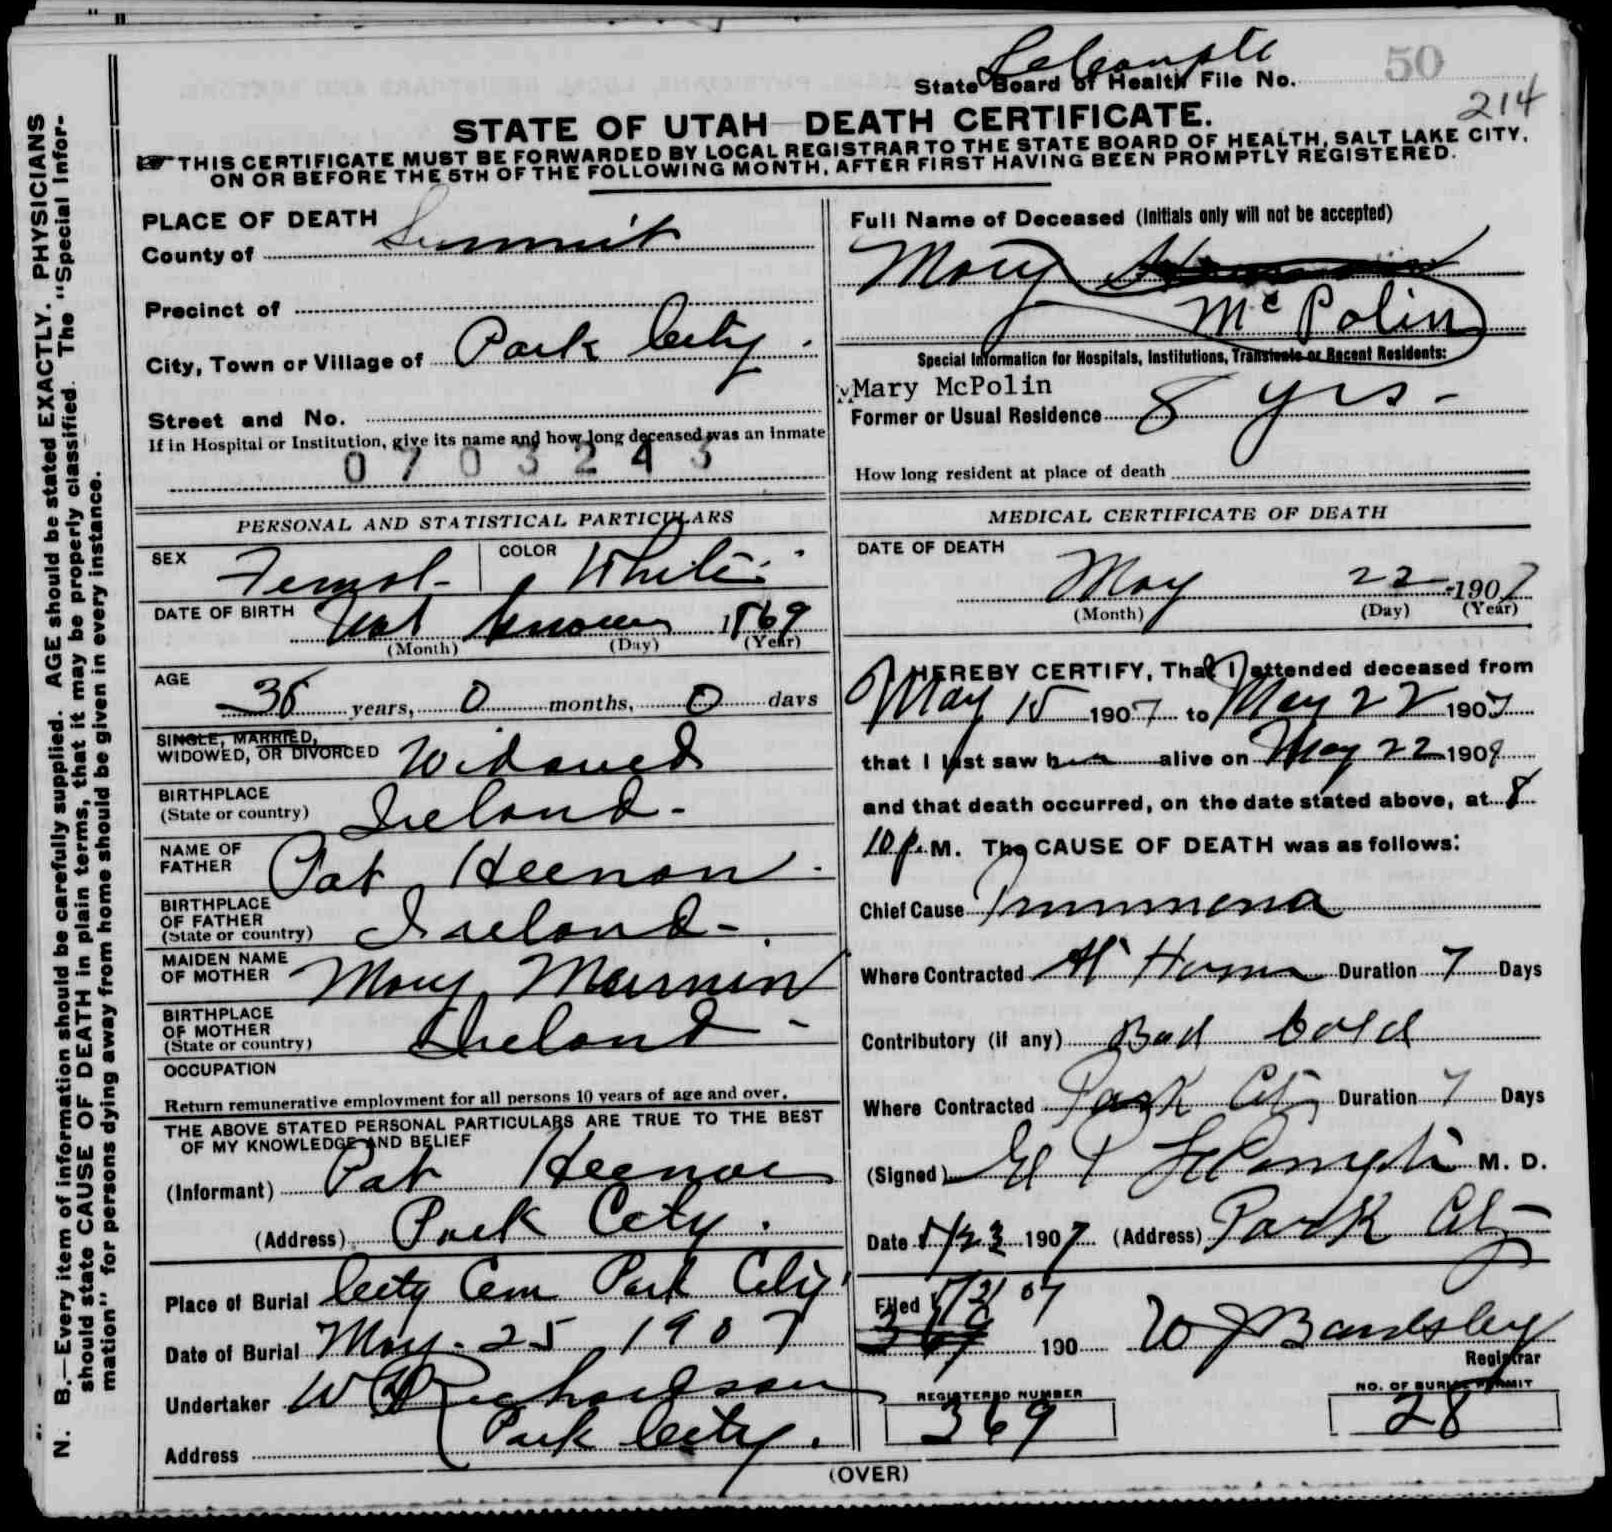 LeCompte
State Board of Health File No. 50
214
STATE OF UTAH—DEATH CERTIFICATE.
☞ THIS CERTIFICATE MUST BE FORWARDED BY LOCAL REGISTRAR TO THE STATE BOARD OF HEALTH, SALT LAKE CITY,
ON OR BEFORE THE 5TH OF THE FOLLOWING MONTH, AFTER FIRST HAVING BEEN PROMPTLY REGISTERED.
N. B.—Every item of information should be carefully supplied. AGE should be stated EXACTLY. PHYSICIANS
should state CAUSE OF DEATH in plain terms, that it may be properly classified. The "Special Infor-
mation" for persons dying away from home should be given in every instance.
PLACE OF DEATH
County of Summit
Precinct of
City, Town or Village of Park City.
Street and No.
If in Hospital or Institution, give its name and how long deceased was an inmate
0703243
PERSONAL AND STATISTICAL PARTICULARS
SEX Femal COLOR White
DATE OF BIRTH Not known 1869
(Month) (Day) (Year)
AGE
38 years, 0 months, 0 days
SINGLE, MARRIED,
WIDOWED, OR DIVORCED Widowed
BIRTHPLACE
(State or country) Ireland-
NAME OF
FATHER Pat Heenan.
BIRTHPLACE
OF FATHER
(State or country) Ireland-.
MAIDEN NAME
OF MOTHER Mary Murnin
BIRTHPLACE
OF MOTHER
(State or country) Ireland-
OCCUPATION
Return remunerative employment for all persons 10 years of age and over.
THE ABOVE STATED PERSONAL PARTICULARS ARE TRUE TO THE BEST
OF MY KNOWLEDGE AND BELIEF
(Informant) Pat Heenan
(Address) Park City.
Place of Burial City Cem Park City
Date of Burial May-25 1907
Undertaker W Richardson
Address Park City.
Full Name of Deceased (Initials only will not be accepted)
Mary
McPolin
Special Information for Hospitals, Institutions, Transients or Recent Residents:
Mary McPolin
Former or Usual Residence 8 yrs-
How long resident at place of death
MEDICAL CERTIFICATE OF DEATH
DATE OF DEATH
May 22 1907
(Month) (Day) (Year)
I HEREBY CERTIFY, That I attended deceased from
May 15 1907 to May 22 1907
that I last saw her alive on May 22 1907
and that death occurred, on the date stated above, at 8
10 p. M. The CAUSE OF DEATH was as follows:
Chief Cause Pnumona
Where Contracted At Home Duration 7 Days
Contributory (if any) Bad Cold
Where Contracted Park City Duration 7 Days
(Signed) E P LeCompte M. D.
Date 5/23 1907 (Address) Park City
Filed 5/31 07
190 W J Bardsley
Registrar
REGISTERED NUMBER
369
NO. OF BURIAL PERMIT
28
(OVER)